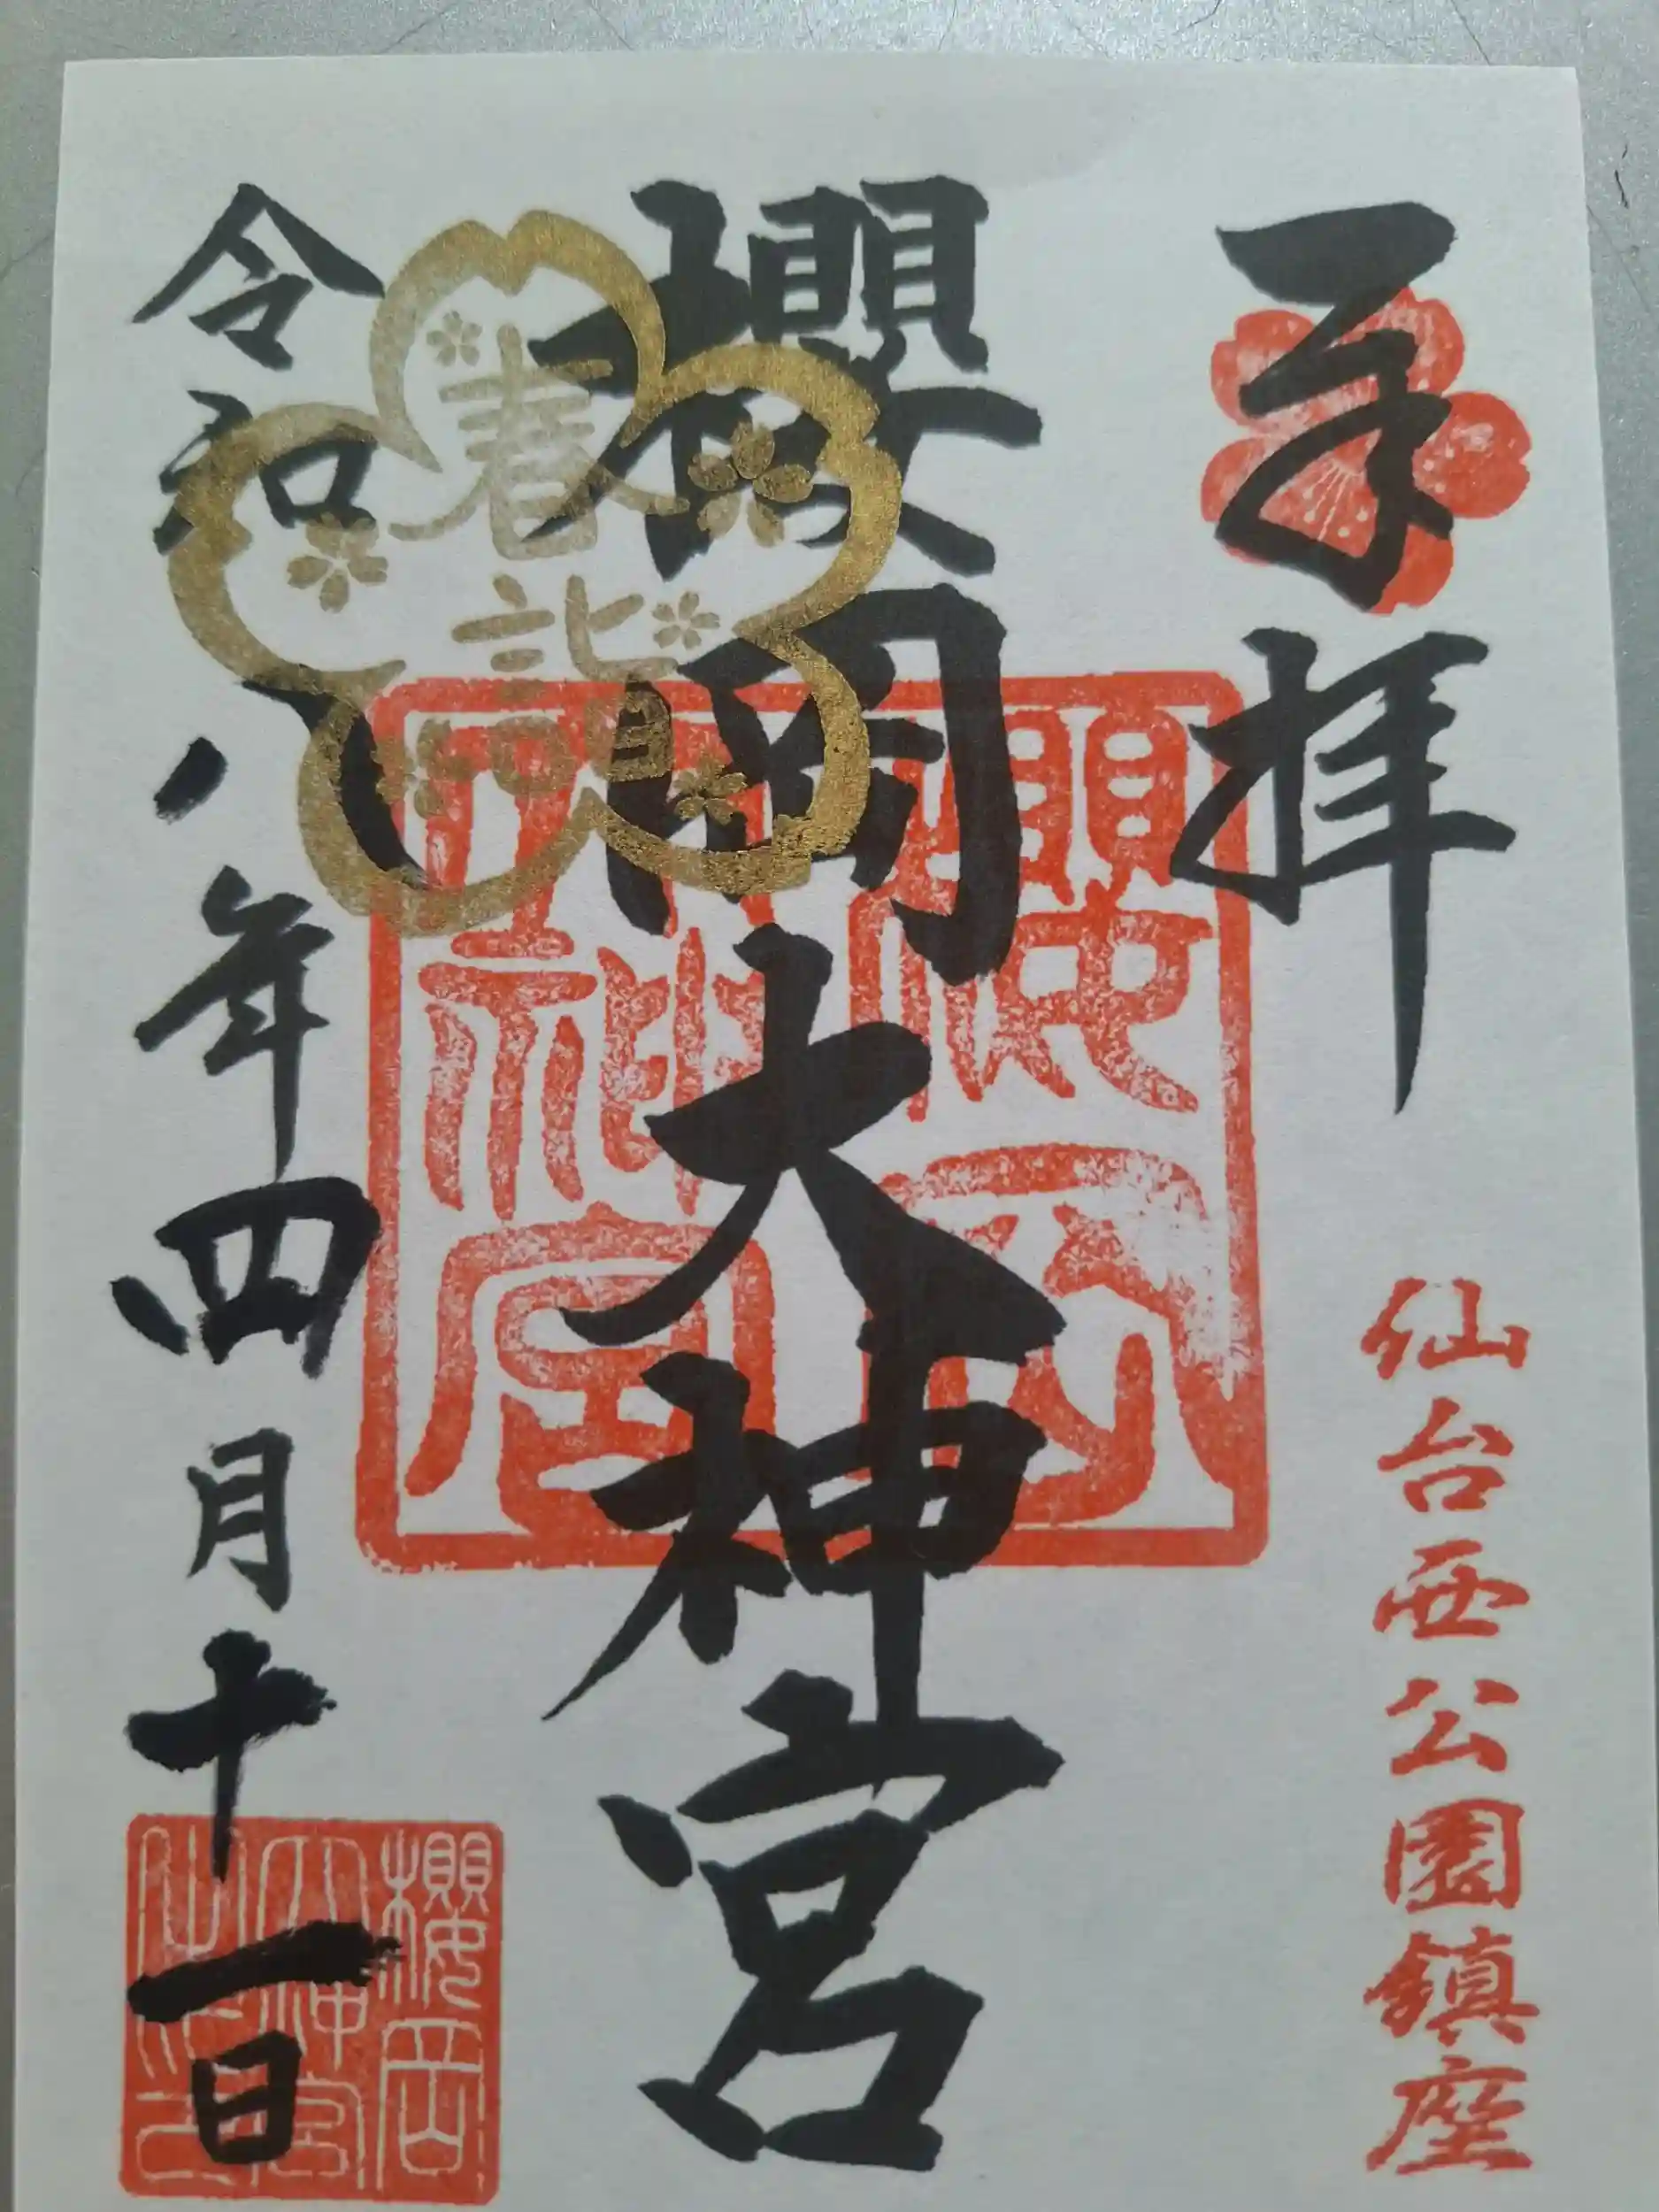 奉拝
仙台西公園鎮座
櫻岡大神宮
櫻岡
大神宮
春詣
令和八年四月十一日
櫻岡
大神宮